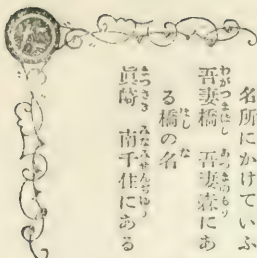 名所にかけていふ
吾妻橋 吾妻森にあ
る橋の名
眞崎 南千住にある